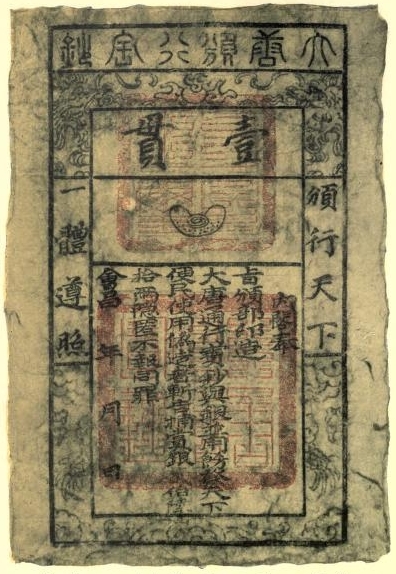 大唐頒行宝鈔
壹貫
頒行天下
一體遵照
内閣奉
旨頒部印造
大唐通行寶鈔與銀並天下
使民使用偽造者斬告捕賞銀佰
拾兩隱匿不報同罪
會昌 年 月 日